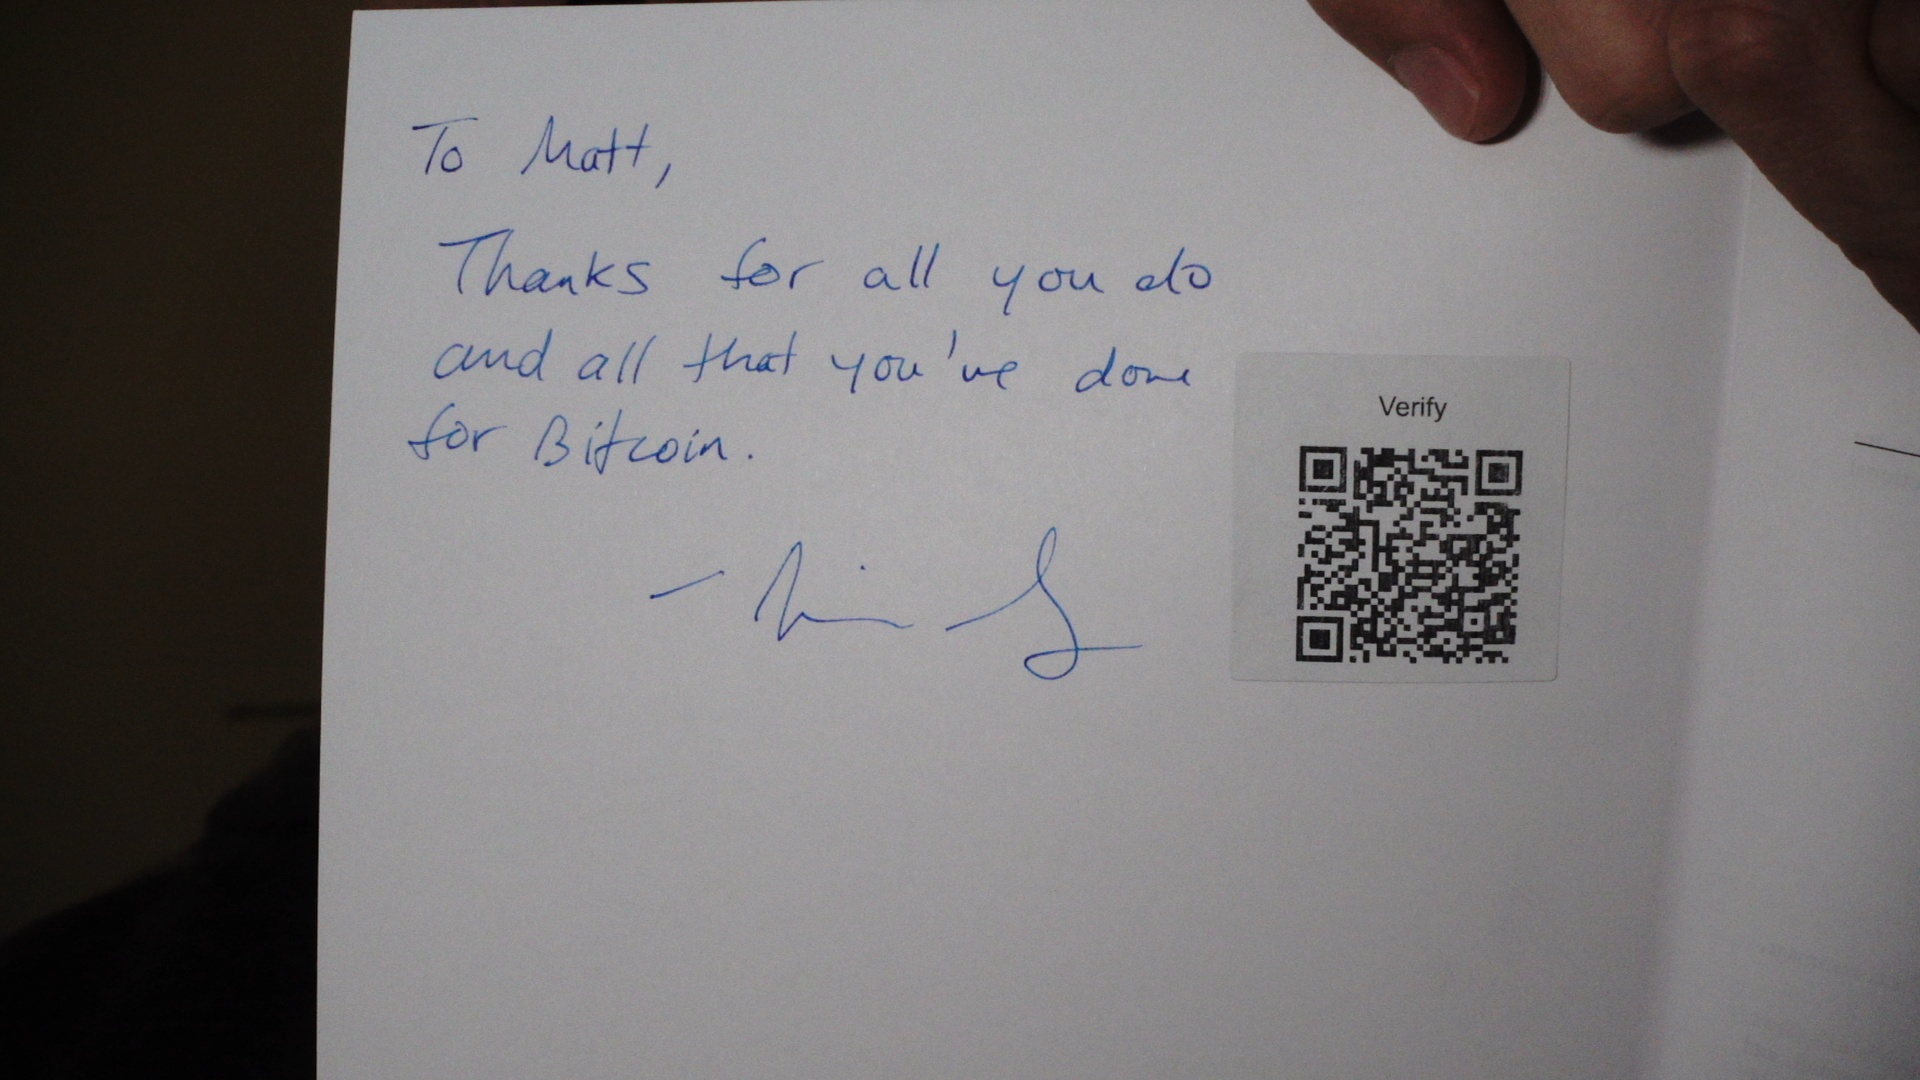 To Matt,
Thanks for all you do
and all that you've done
for Bitcoin.
Verify